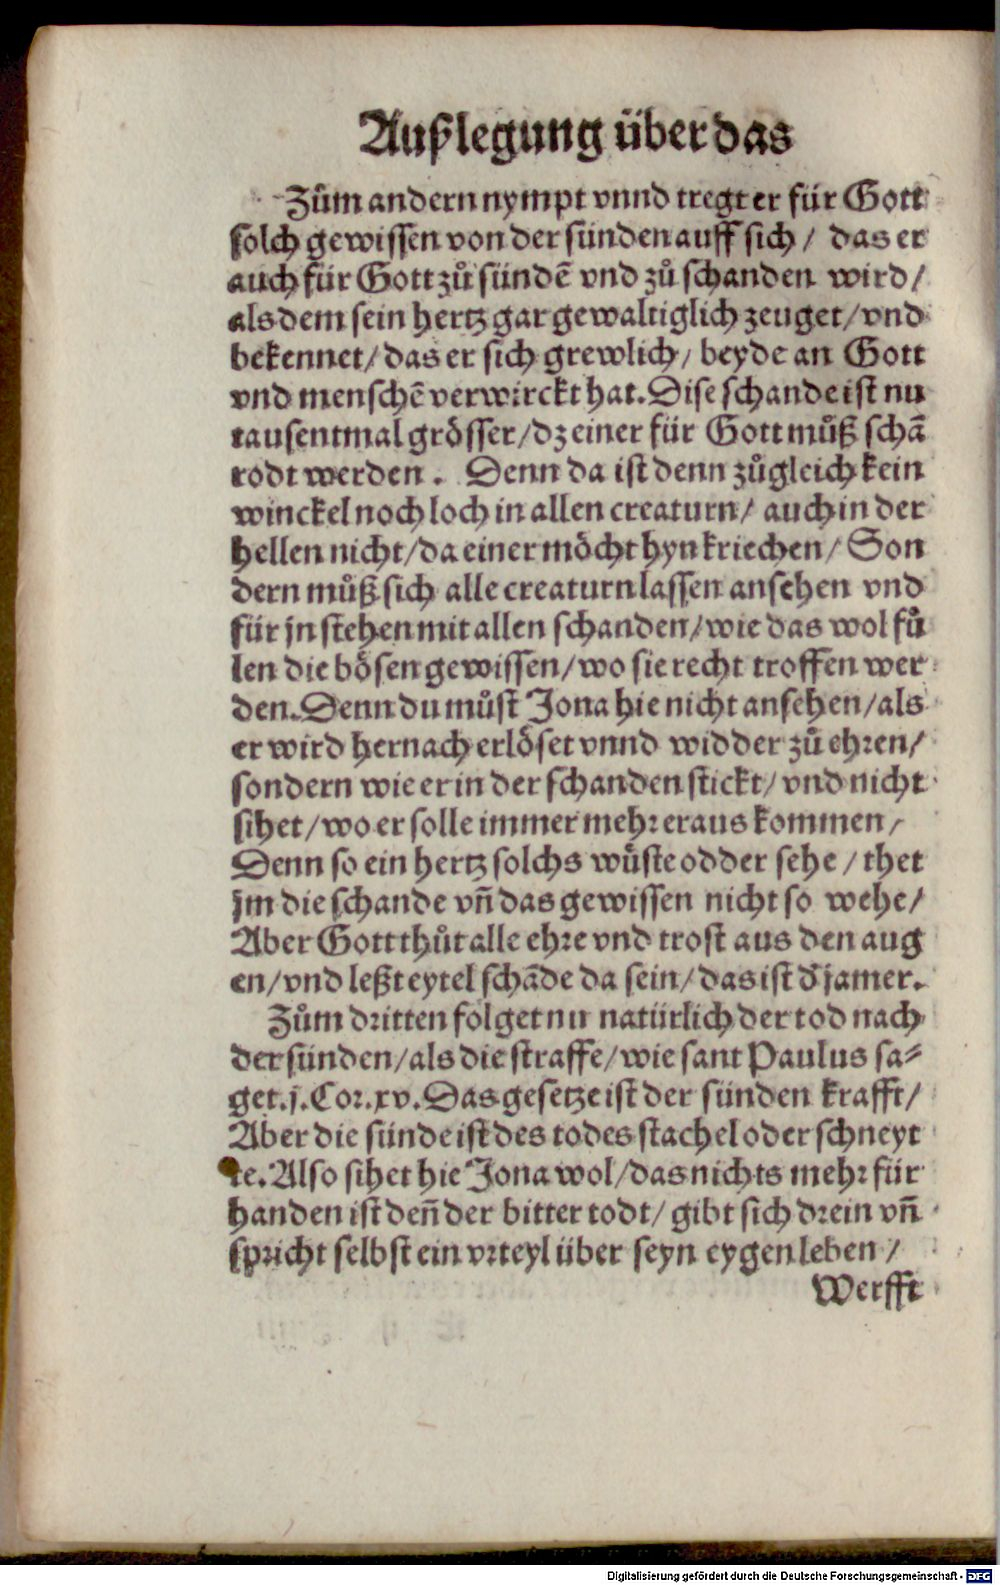 Außlegung über das
Zům andern nympt vnnd tregt er für Gott
solch gewissen von der sünden auff sich / das er
auch für Gott zů sündē vnd zů schanden wird /
als dem sein hertz gar gewaltiglich zeuget / vnd
bekennet / das er sich grewlich / beyde an Gott
vnd menschē verwirckt hat. Dise schande ist nu
tausentmal grösser / dz einer für Gott můß schā
rodt werden . Denn da ist denn zůgleich kein
winckel noch loch in allen creaturn / auch in der
hellen nicht / da einer möcht hyn kriechen / Son
dern můß sich alle creaturn lassen ansehen vnd
für jn stehen mit allen schanden / wie das wol fů
len die bösen gewissen / wo sie recht troffen wer
den. Denn du můst Jona hie nicht ansehen / als
er wird hernach erlöset vnnd widder zů ehren /
sondern wie er in der schanden stickt / vnd nicht
sihet / wo er solle immer mehr eraus kommen /
Denn so ein hertz solchs wůste odder sehe / thet
jm die schande vn̄ das gewissen nicht so wehe /
Aber Gott thůt alle ehre vnd trost aus den aug
en / vnd leßt eytel schāde da sein / das ist d̓ jamer.
Zům dritten folget nu natürlich der tod nach
der sünden / als die straffe / wie sant Paulus sa⸗
get. j. Cor. xv. Das gesetze ist der sünden krafft /
Aber die sünde ist des todes stachel oder schneyt
te. Also sihet hie Jona wol / das nichts mehr für
handen ist den̄ der bitter todt / gibt sich drein vn̄
spricht selbst ein vrteyl über seyn eygen leben /
Werfft
Digitalisierung gefördert durch die Deutsche Forschungsgemeinschaft - DFG